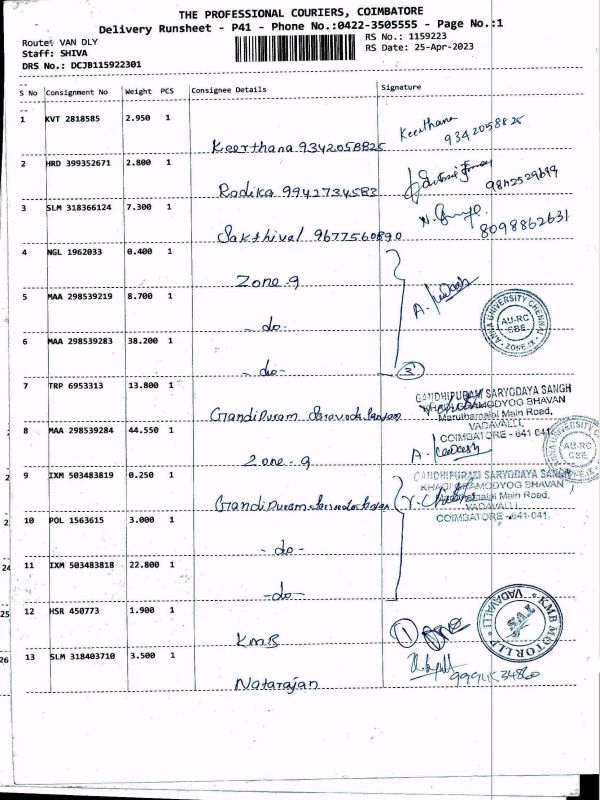 THE PROFESSIONAL COURIERS, COIMBATORE
Delivery Runsheet - P41 - Phone No.:0422-3505555 - Page No.:1
Route: VAN DLY
Staff: SHIVA
DRS No.: DCJB115922301
RS No.: 1159223
RS Date: 25-Apr-2023
S No Consignment No Weight PCS Consignee Details Signature
1 KVT 2818585 2.950 1
Keerthana 9342058825 Keerthana 9342058825
2 HRD 399352671 2.800 1
Radika 9942734583 9842529649
3 SLM 318366124 7.300 1
Sakthival 9677560890 8098862631
4 NGL 1962033 0.400 1
Zone-9
5 MAA 298539219 8.700 1
- do - A.
ANNA UNIVERSITY CHENNAI
AU-RC
CBE
ZONE IX
6 MAA 298539283 38.200 1
- do - 3
7 TRP 6953313 13.800 1
Gandipuram
GANDHIPURAM SARVODAYA SANGH
KHADI GRAMODYOG BHAVAN
Maruthamalai Main Road,
VADAVALLI,
COIMBATORE - 641 041.
8 MAA 298539284 44.550 1
Zone-9 A.
AU-RC
CBE
9 IXM 503483819 0.250 1
Gandipuram
GANDHIPURAM SARVODAYA SANGH
KHADI GRAMODYOG BHAVAN
Maruthamalai Main Road,
VADAVALLI,
COIMBATORE - 641-041.
10 POL 1563615 3.000 1
- do -
24 11 IXM 503483818 22.800 1
- do -
25 12 HSR 450773 1.900 1
KMB 1
KMB MOTOR LLP
VADAVALLI
26 13 SLM 318403710 3.500 1
Natarajan